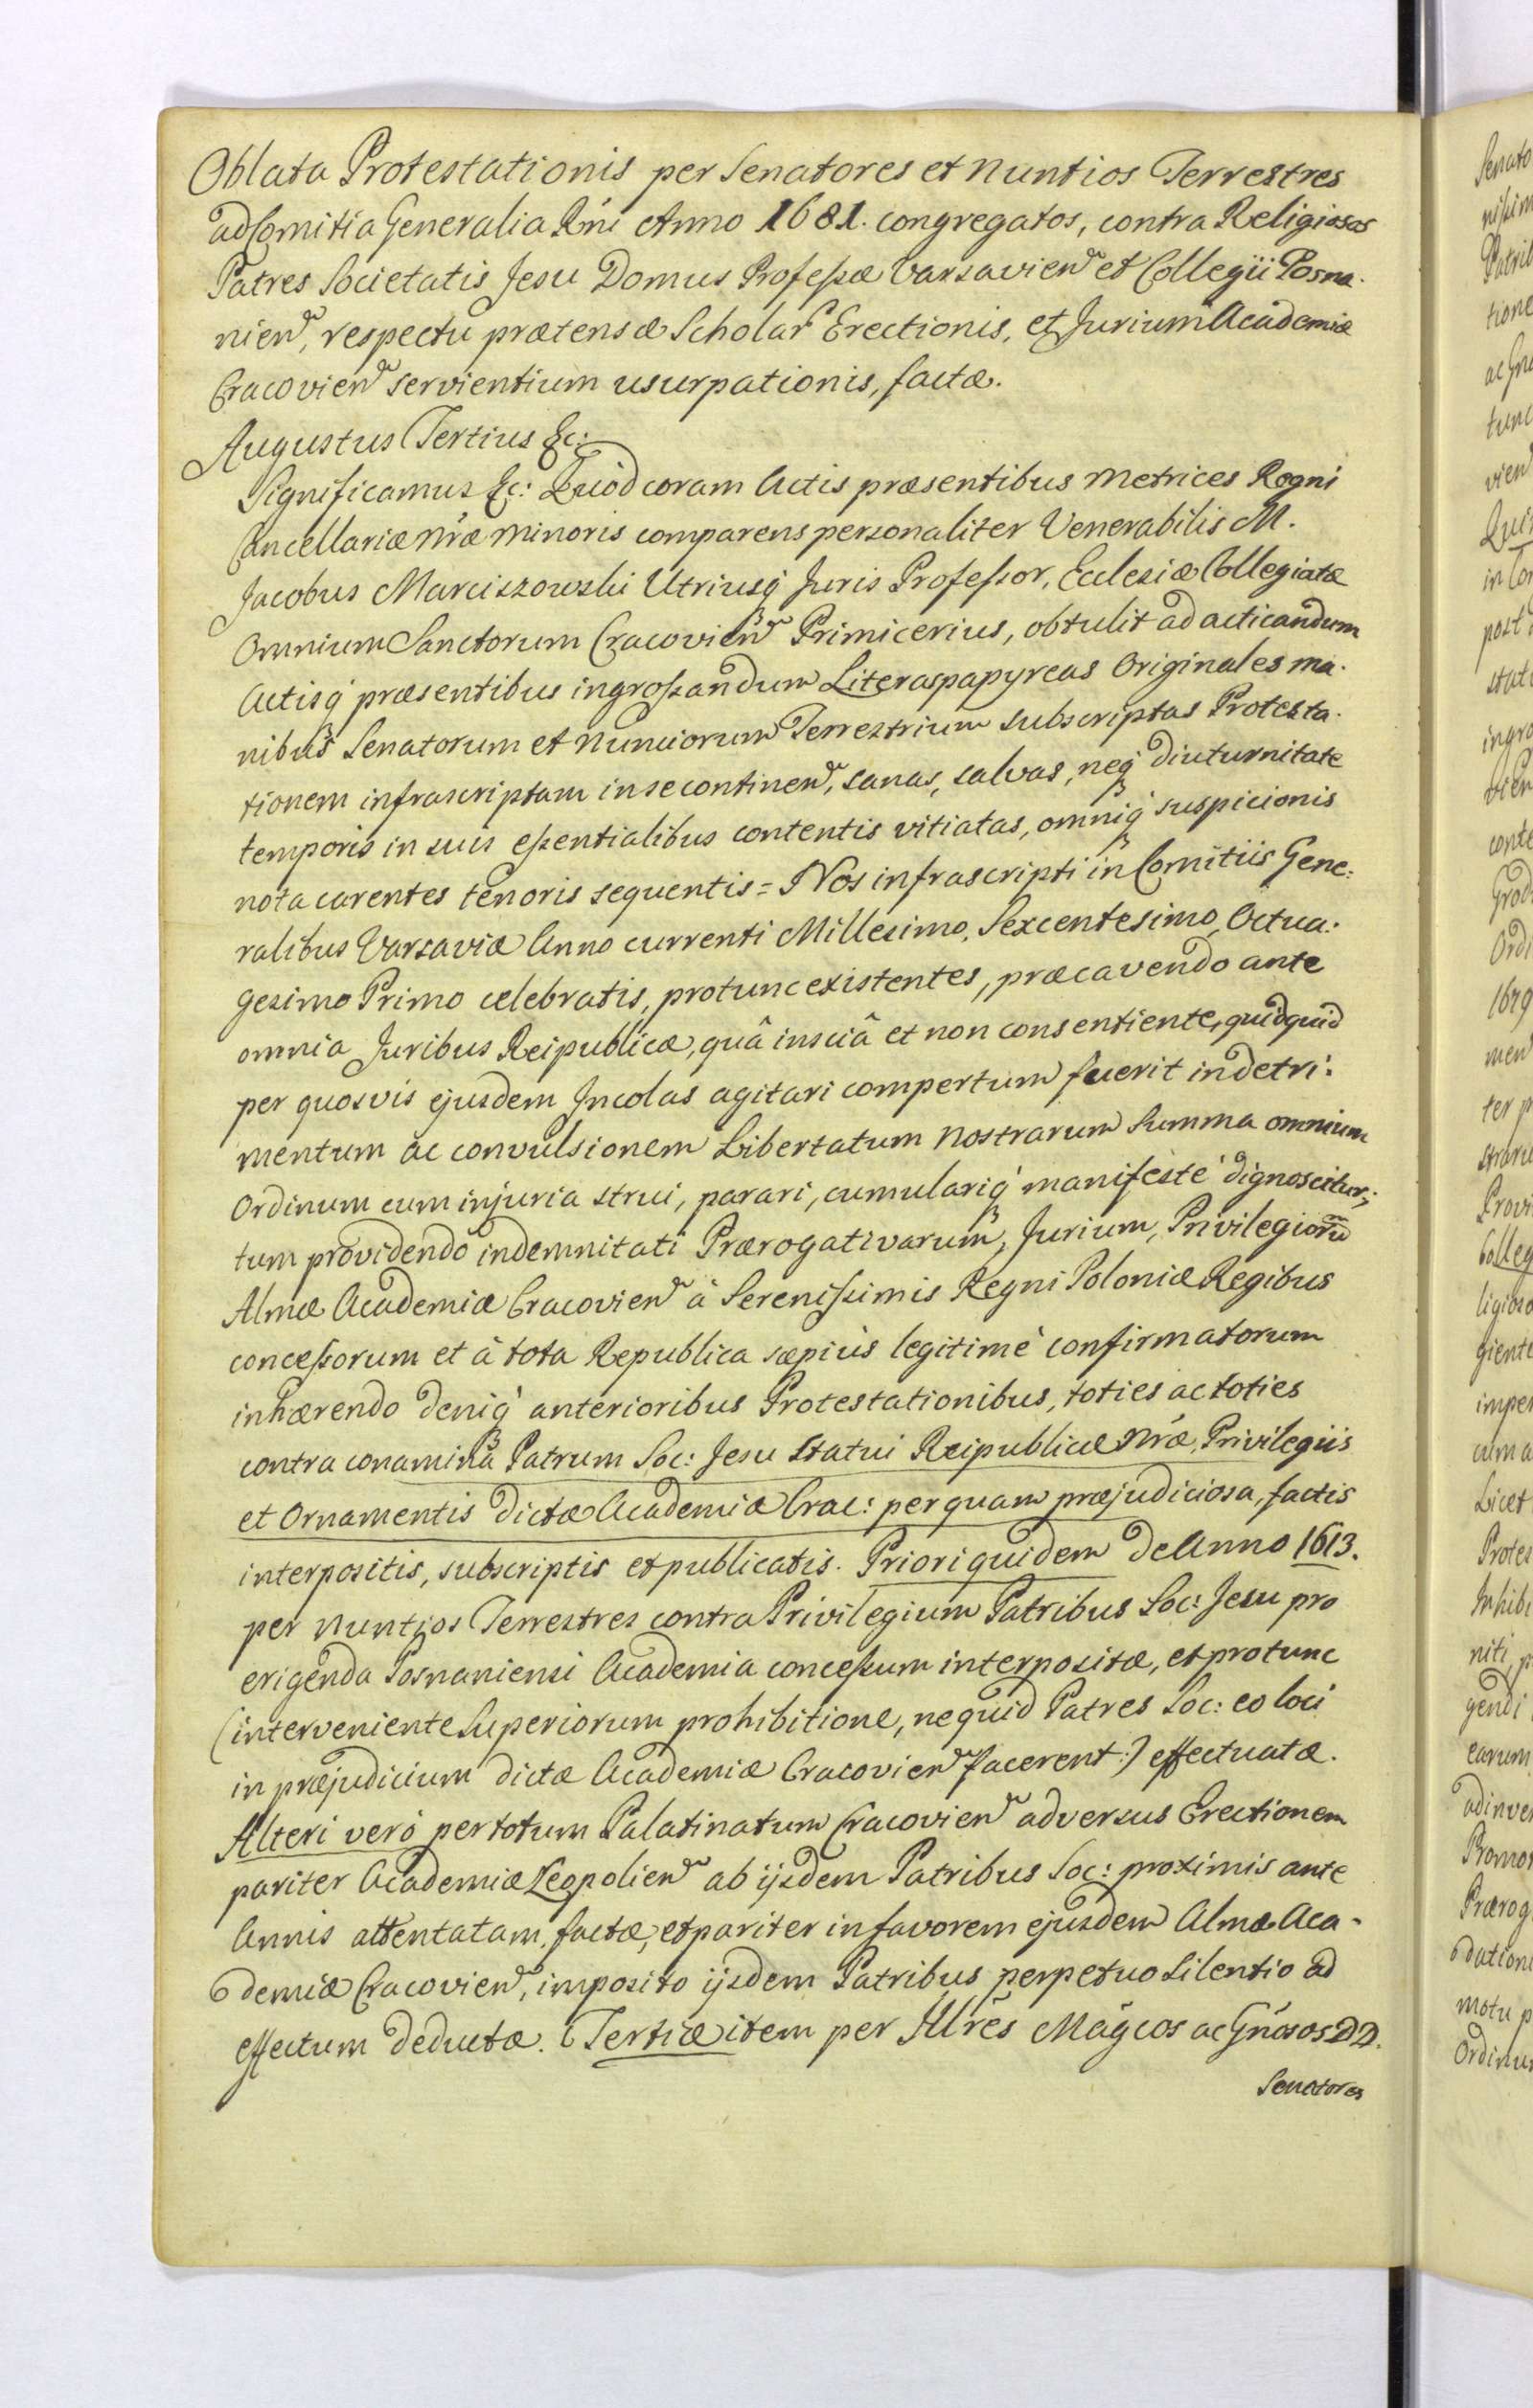 Oblata Protestationis per Senatores et Nuntios Terrestres
ad Comitia Generalia Rni Anno 1681. congregatos, contra Religiosos
Patres Societatis Jesu Domus Professæ Varsavien et Collegii Posna-
nien, respectu prætensæ Scholar Erectionis, et Jurium Academiæ
Cracovien servientium usurpationis, factæ.
Augustus Tertius &c:
Significamus &c: Quod coram Actis præsentibus Metrices Regni
Cancellariæ Nræ Minoris comparens personaliter Venerabilis M.
Jacobus Marciszowski Utriusq Juris Professor, Ecclesiæ Collegiatæ
Omnium Sanctorum Cracovien Primicerius, obtulit ad acticandum
Actisq præsentibus ingrossandum Literas papyreas Originales ma-
nibus Senatorum et Nunciorum Terrestrium subscriptas Protesta-
tionem infrascriptam in se continen, sanas, salvas, neq diuturnitate
temporis in suis essentialibus contentis vitiatas, omniq suspicionis
nota carentes tenoris sequentis = Nos infrascripti in Comitiis Gene-
ralibus Varsaviæ Anno currenti Millesimo, Sexcentesimo, Octua-
gesimo Primo celebratis, protunc existentes, præcavendo ante
omnia Juribus Reipublicæ, quâ insciâ et non consentiente, quidquid
per quosvis ejusdem Incolas agitari compertum fuerit in detri-
mentum ac convulsionem Libertatum Nostrarum summa omnium
Ordinum cum injuria strui, parari, cumulariq manifestè dignoscitur;
tum providendo indemnitati Prærogativarum, Jurium, Privilegiorũ
Almæ Academiæ Cracovien à Serenissimis Regni Poloniæ Regibus
concessorum et à tota Republica sæpiùs legitimè confirmatorum
inhærendo deniq anterioribus Protestationibus, toties ac toties
contra conamina Patrum Soc: Jesu Statui Reipublicæ Nræ, Privilegiis
et Ornamentis dictæ Academiæ Crac: perquam præjudiciosa, factis
interpositis, subscriptis et publicatis. Priori quidem de Anno 1613.
per Nuntios Terrestres contra Privilegium Patribus Soc: Jesu pro
erigenda Posnaniensi Academia concessum interpositæ, et protunc
(interveniente Superiorum prohibitione, nequid Patres Soc: eo loci
in præjudicium dictæ Academiæ Cracovien facerent:) effectuatæ.
Alteri verò per totum Palatinatum Cracovien adversus Erectionem
pariter Academiæ Leopolien ab ijsdem Patribus Soc: proximis ante
Annis attentatam, factæ, et pariter in favorem ejusdem Almæ Aca-
demiæ Cracovien, imposito ijsdem Patribus perpetuo silentio ad
effectum deductæ. Tertiæ item per Illres Magcos ac Gnosos DD.
Senatores